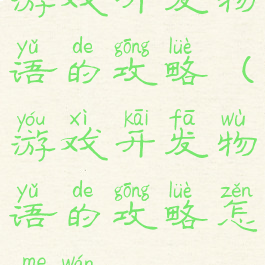 游戏开发物
yǔ de gōng lüè
语的攻略（
yóu xì kāi fā wù
游戏开发物
yǔ de gōng lüè zěn
语的攻略怎
me wán